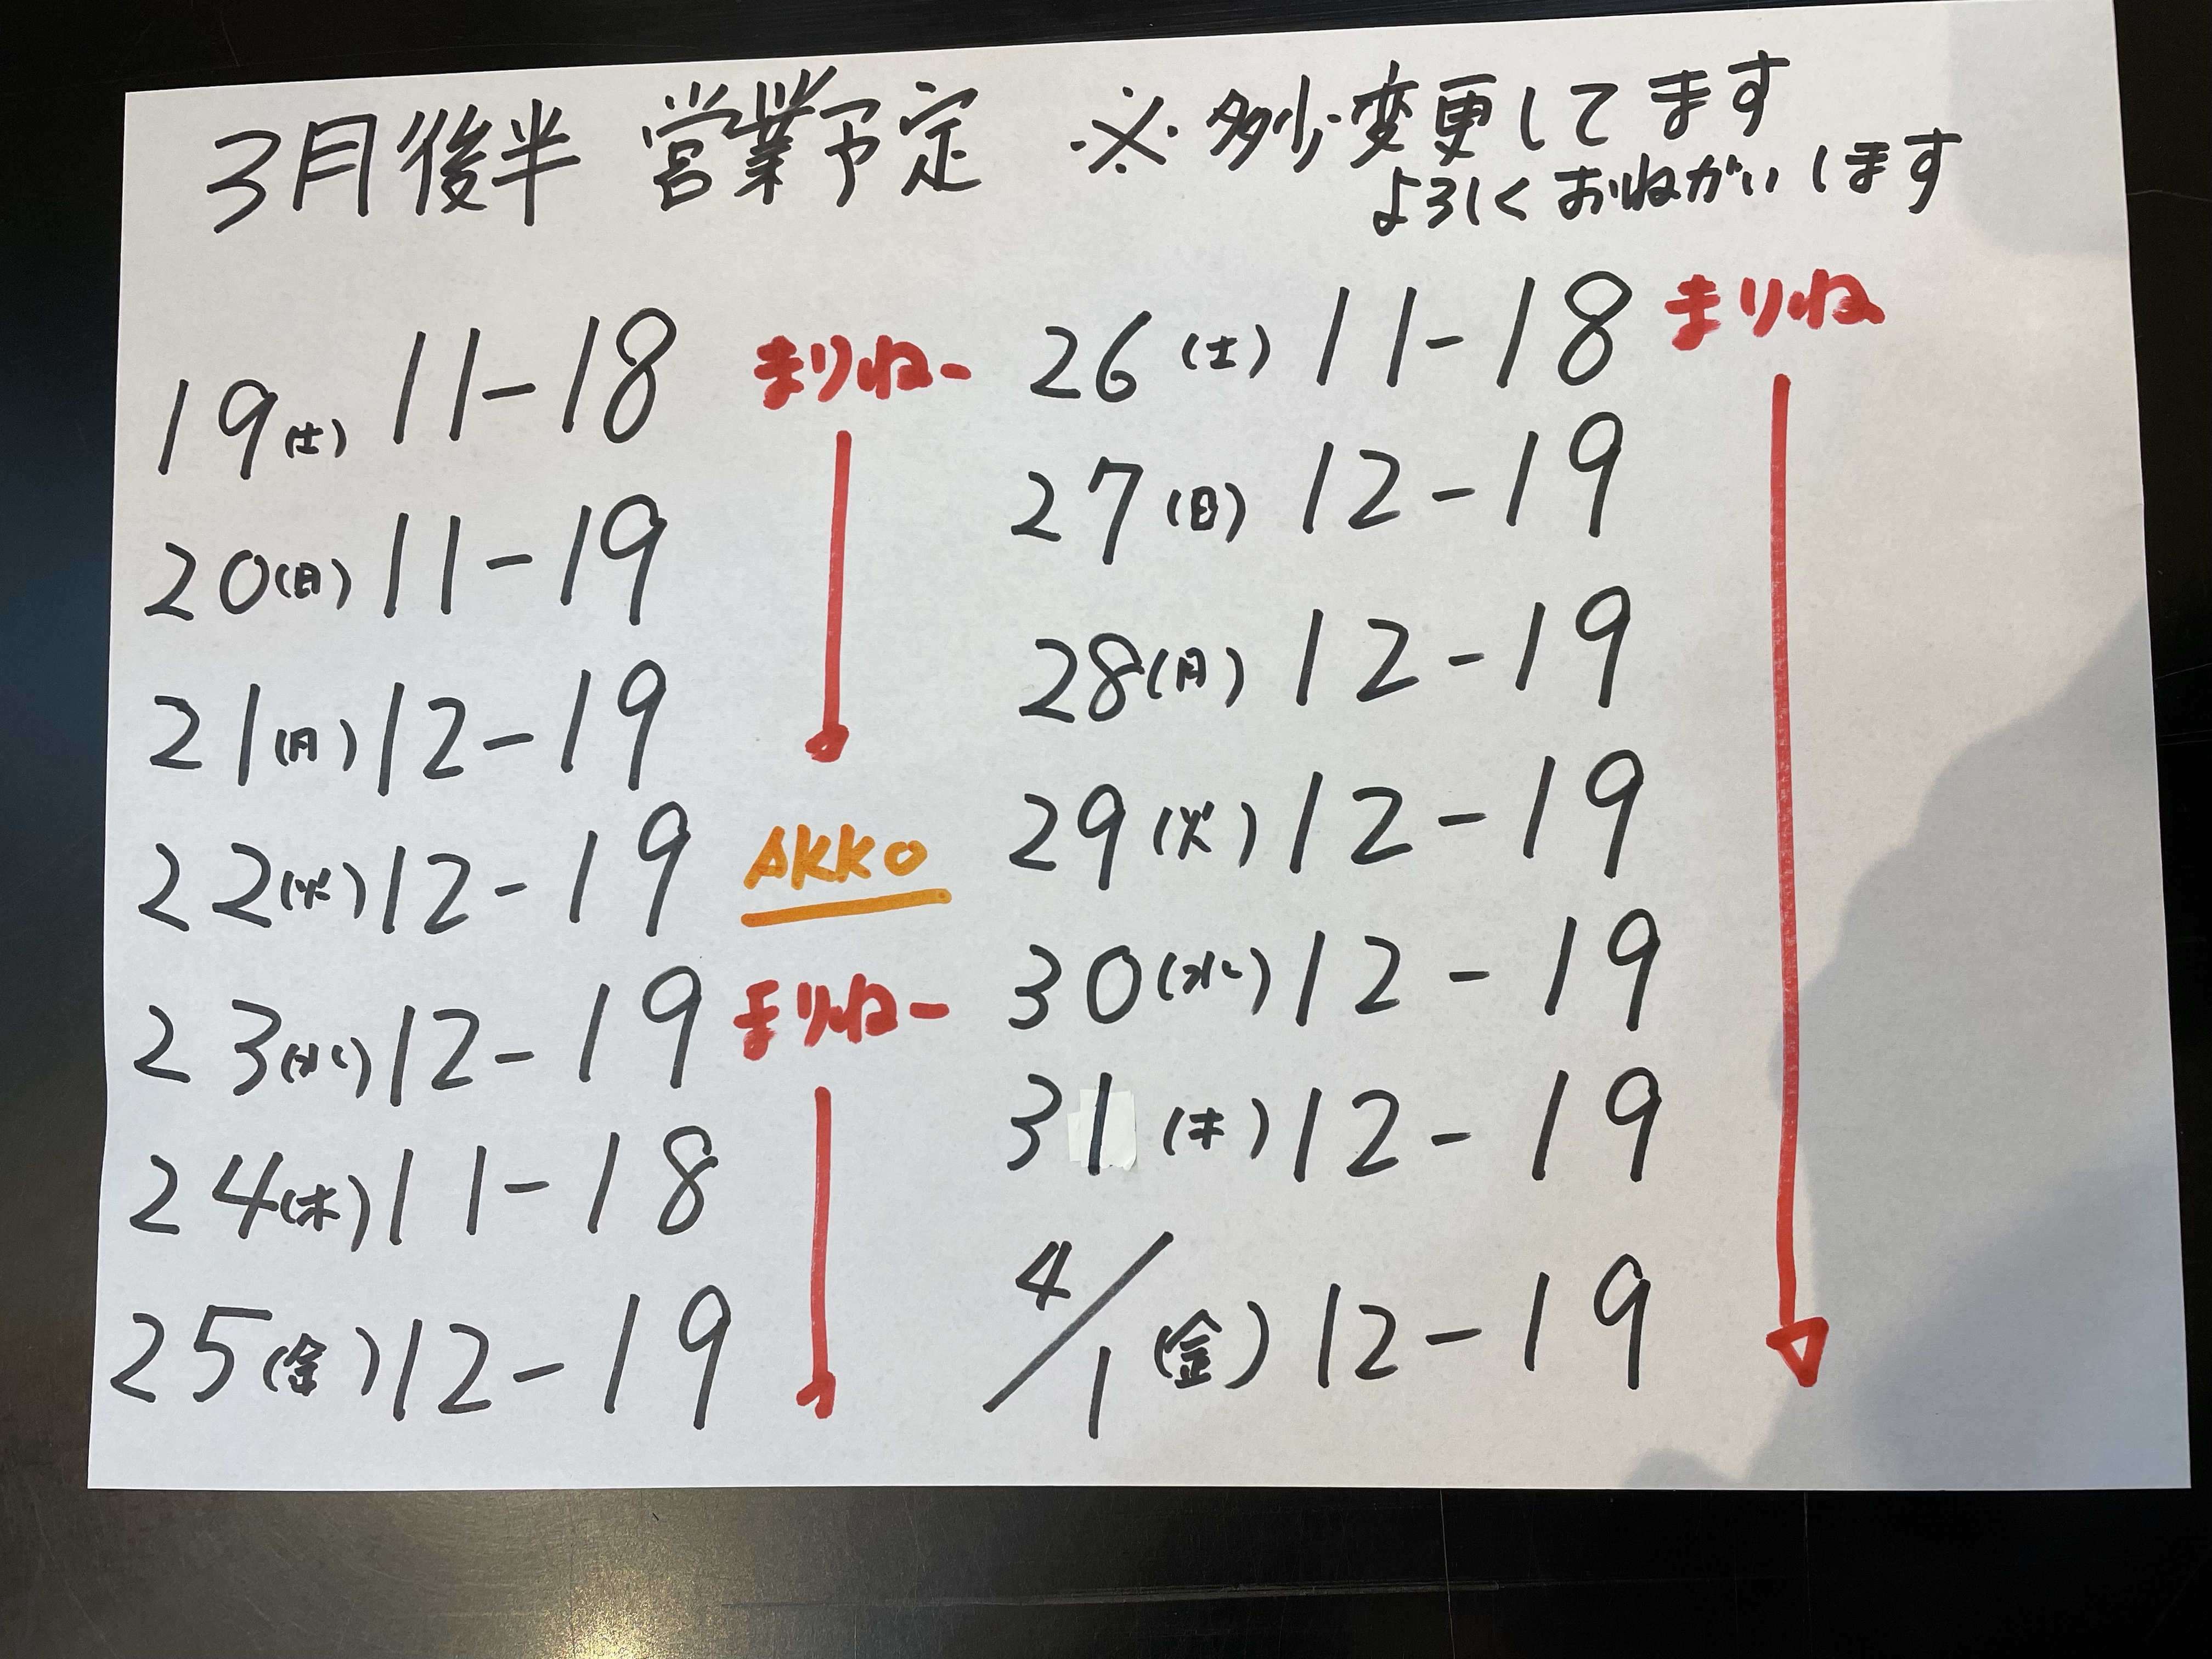 3月後半 営業予定 ※多少変更してます
よろしくおねがいします
19(土) 11-18 まりねー
20(日) 11-19
21(月) 12-19
22(火) 12-19 AKKO
23(水) 12-19 まりねー
24(木) 11-18
25(金) 12-19
26(土) 11-18 まりね
27(日) 12-19
28(月) 12-19
29(火) 12-19
30(水) 12-19
31(木) 12-19
4/1(金) 12-19